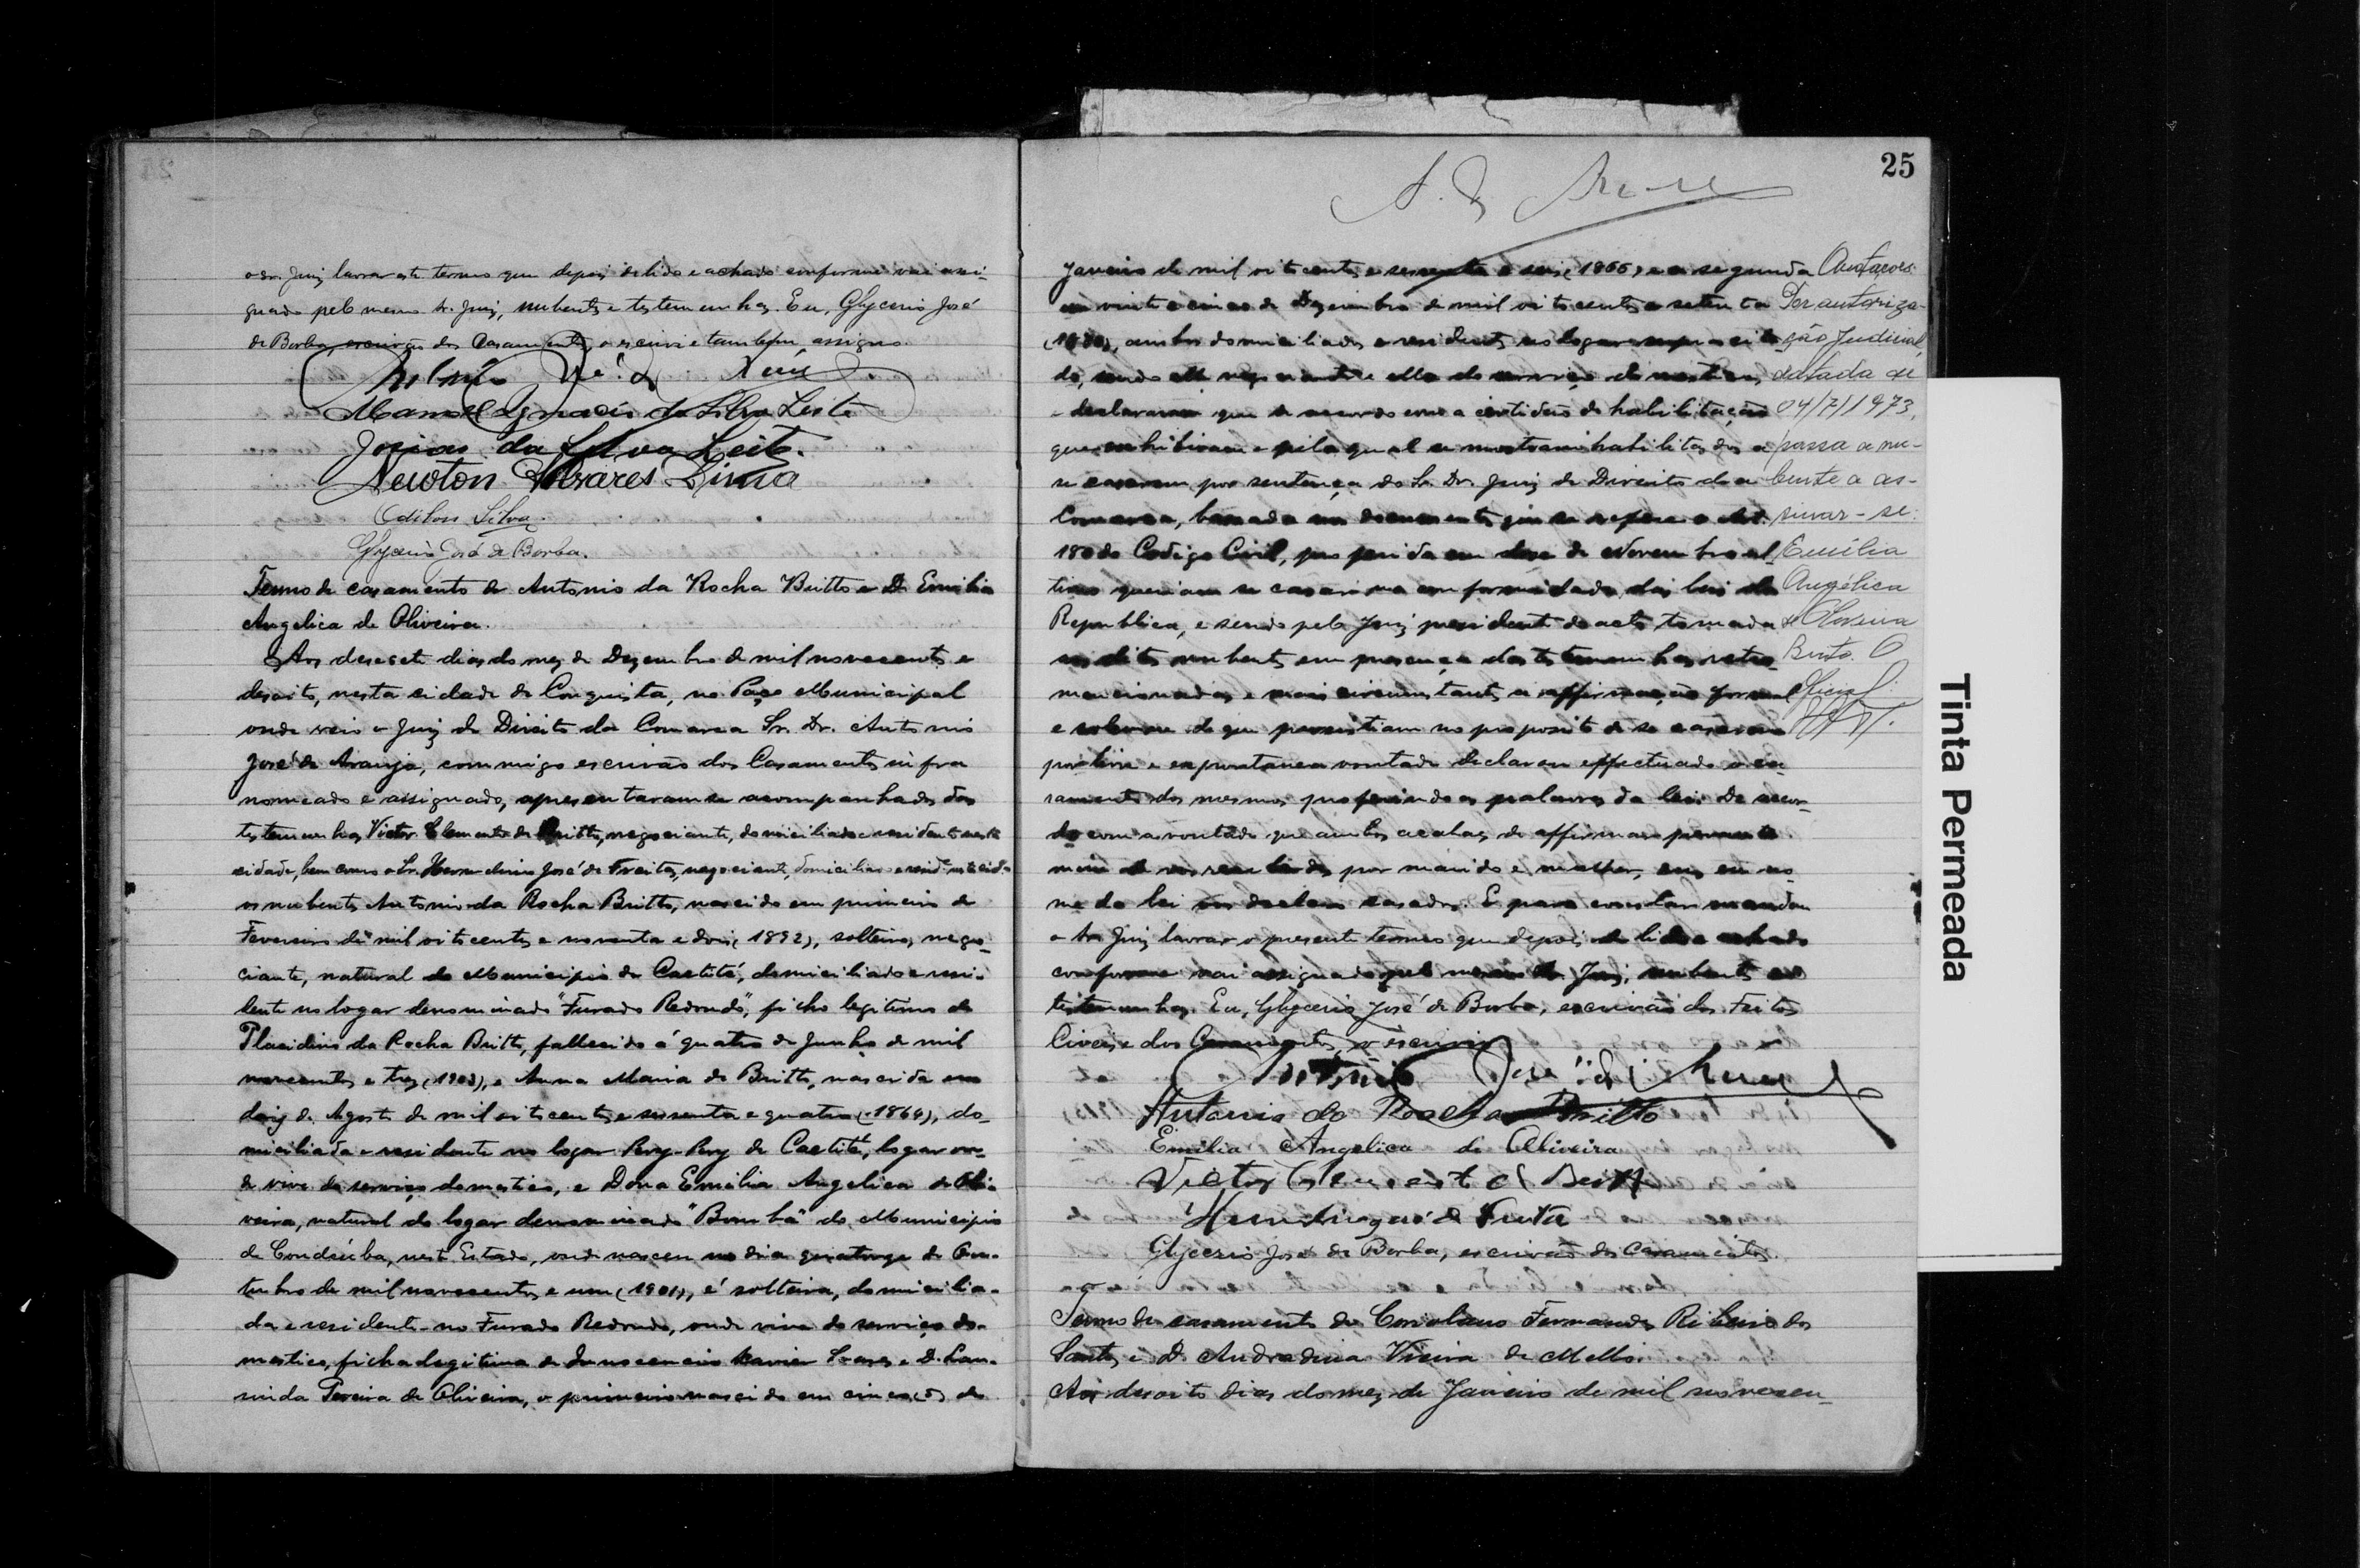 o sr. Juiz lavrar este termo que depois de lido e achado conforme vai assi-
gnado pelo mesmo sr. Juiz, nubentes e testemunhas. Eu, Glycerio José
de Borba, escrivão dos Casamentos, o escrivi e tambem assigno.
Manoel Ignacio da Silva Leite
Josias da Silva Leite.
Newton Alvares Lima
Odilon Silva.
Glycerio José de Borba.
Termo de casamento de Antonio da Rocha Britto e D. Emilia
Angelica de Oliveira.
Aos desesete dias do mez de Dezembro de mil novecentos e
desoito, nesta cidade de Conquista, no Paço Municipal
onde veio o Juiz de Direito da Comarca Sr. Dr. Antonio
José de Araujo, commigo escrivão dos Casamentos infra
nomeado e assignado, apresentaram-se acompanhados das
testemunhas Victor Clemente de Britto, negociante, domiciliado e residente nesta
cidade, bem como o Sr. José de Freitas, negociante, domiciliado e resid.e nesta cid.e
os nubentes Antonio da Rocha Britto, nascido em primeiro de
Fevereiro de mil oitocentos e noventa e dois (1892), solteiro, nego-
ciante, natural do Municipio de Caetité, domiciliado e resi-
dente no logar denominado "Furado Redondo", filho legitimo de
Placidino da Rocha Britto, fallecido á quatro de Junho de mil
novecentos e tres (1903), e Anna Maria de Britto, nascida em
dois de Agosto de mil oitocentos e sessenta e quatro (1864), do-
miciliada e residente no logar Pery-Pery de Caetité, logar on-
de vive do serviço domestico, e Dona Emilia Angelica de Oli-
veira, natural do logar denominado "Bomba" do Municipio
de Condeúba, neste Estado, onde nasceu no dia quatorze de Ou-
tubro de mil novecentos e um (1901), é solteira, domicilia-
da e residente no Furado Redondo, onde vive do serviço do-
mestico, filha legitima de Innocencio Xavier Soares e D. Lau-
rinda Pereira de Oliveira, o primeiro nascido em cinco (5) de
25
Janeiro de mil oitocentos e sessenta e seis (1866) e a segunda
em vinte e cinco de Dezembro de mil oitocentos e setenta
(1870), ambos domiciliados e residentes no logar supra cita-
do, sendo elle negociante e ella do serviço domestico,
declararam que de accordo com a certidão de habilitação
que exhibiram e pela qual se mostram habilitados a
se casarem por sentença do Sr. Dr. Juiz de Direito da
Comarca, baseada nos documentos que se refere o Art.
180 do Codigo Civil, proferida em doze de Novembro ul-
timo queriam se casar na conformidade das leis da
Republica, e sendo pelo Juiz presidente do acto tomada
aos ditos nubentes em presença das testemunhas retro
mencionadas e mais circumstantes a affirmação formal
e solemne de que persistiam no proposito de se casarem
por livre e espontanea vontade declarou effectuado o ca-
samento dos mesmos proferindo as palavras da lei: De accor-
do com a vontade que ambos acabaes de affirmar perante
mim de vos receberdes por marido e mulher, eu, em no-
me da lei vos declaro casados. E para constar mandou
o Sr. Juiz lavrar o presente termo que depois de lido e achado
conforme vai assignado pelo mesmo Sr. Juiz, nubentes e
testemunhas. Eu, Glycerio José de Borba, escrivão dos Feitos
Civeis e dos Casamentos, o escrivi.
Antonio José de Araujo
Antonio da Rocha Britto
Emilia Angelica de Oliveira
Victor Clemente de Britto
José de Freitas
Glycerio José de Borba, escrivão dos Casamentos.
Termo de casamento de Coriolano Fernandes Ribeiro dos
Santos e D. Andradina Vieira de Mello.
Aos desoito dias do mez de Janeiro de mil novecen-
Anotações:
Por autoriza-
ção Judicial,
datada de
04/7/1973,
passa a nu-
bente a as-
sinar-se:
Emília
Angélica
de Oliveira
Brito. O
Oficial:
Tinta Permeada